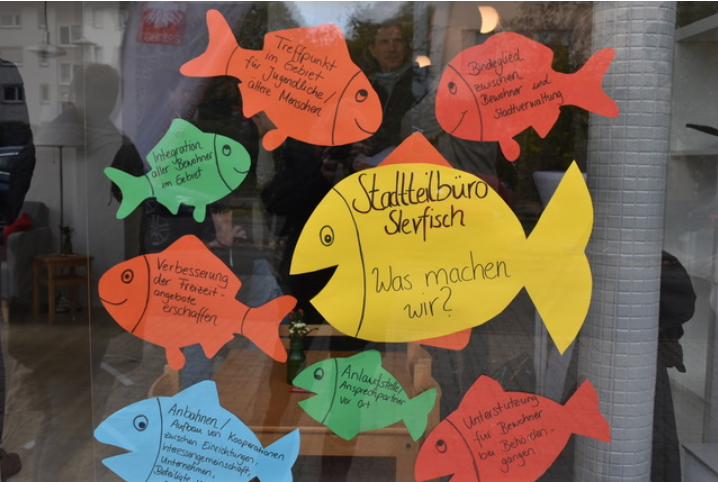 Treffpunkt
im Gebiet
für Jugendliche/
ältere Menschen
Bindeglied
zwischen
Bewohner und
Stadtverwaltung
Integration
aller Bewohner
im Gebiet
Stadtteilbüro
Slevfisch
Was machen
wir?
Verbesserung
der Freizeit-
angebote
erschaffen
Anlaufstelle/
Ansprechpartner
vor Ort
Anbahnen/
Aufbau von Kooperationen
zwischen Einrichtungen,
Interessengemeinschaft,
Unternehmen,
Beteiligte
Unterstützung
für Bewohner
bei Behörden-
gängen